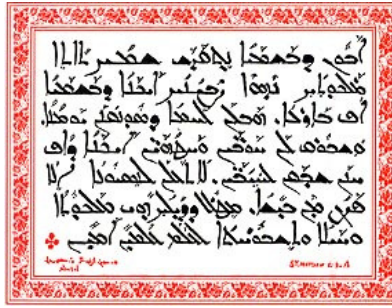 ܐܒܘܢ ܕܒܫܡܝܐ ܢܬܩܕܫ ܫܡܟ ܬܐܬܐ
ܡܠܟܘܬܟ ܢܗܘܐ ܨܒܝܢܟ ܐܝܟܢܐ ܕܒܫܡܝܐ
ܐܦ ܒܐܪܥܐ. ܗܒ ܠܢ ܠܚܡܐ ܕܣܘܢܩܢܢ ܝܘܡܢܐ.
ܘܫܒܘܩ ܠܢ ܚܘܒܝܢ ܘܚܛܗܝܢ ܐܝܟܢܐ ܕܐܦ
ܚܢܢ ܫܒܩܢ ܠܚܝܒܝܢ. ܠܐ ܬܥܠܢ ܠܢܣܝܘܢܐ ܐܠܐ
ܦܨܢ ܡܢ ܒܝܫܐ. ܡܛܠ ܕܕܝܠܟ ܗܝ ܡܠܟܘܬܐ
ܘܚܝܠܐ ܘܬܫܒܘܚܬܐ ܠܥܠܡ ܥܠܡܝܢ ܐܡܝܢ